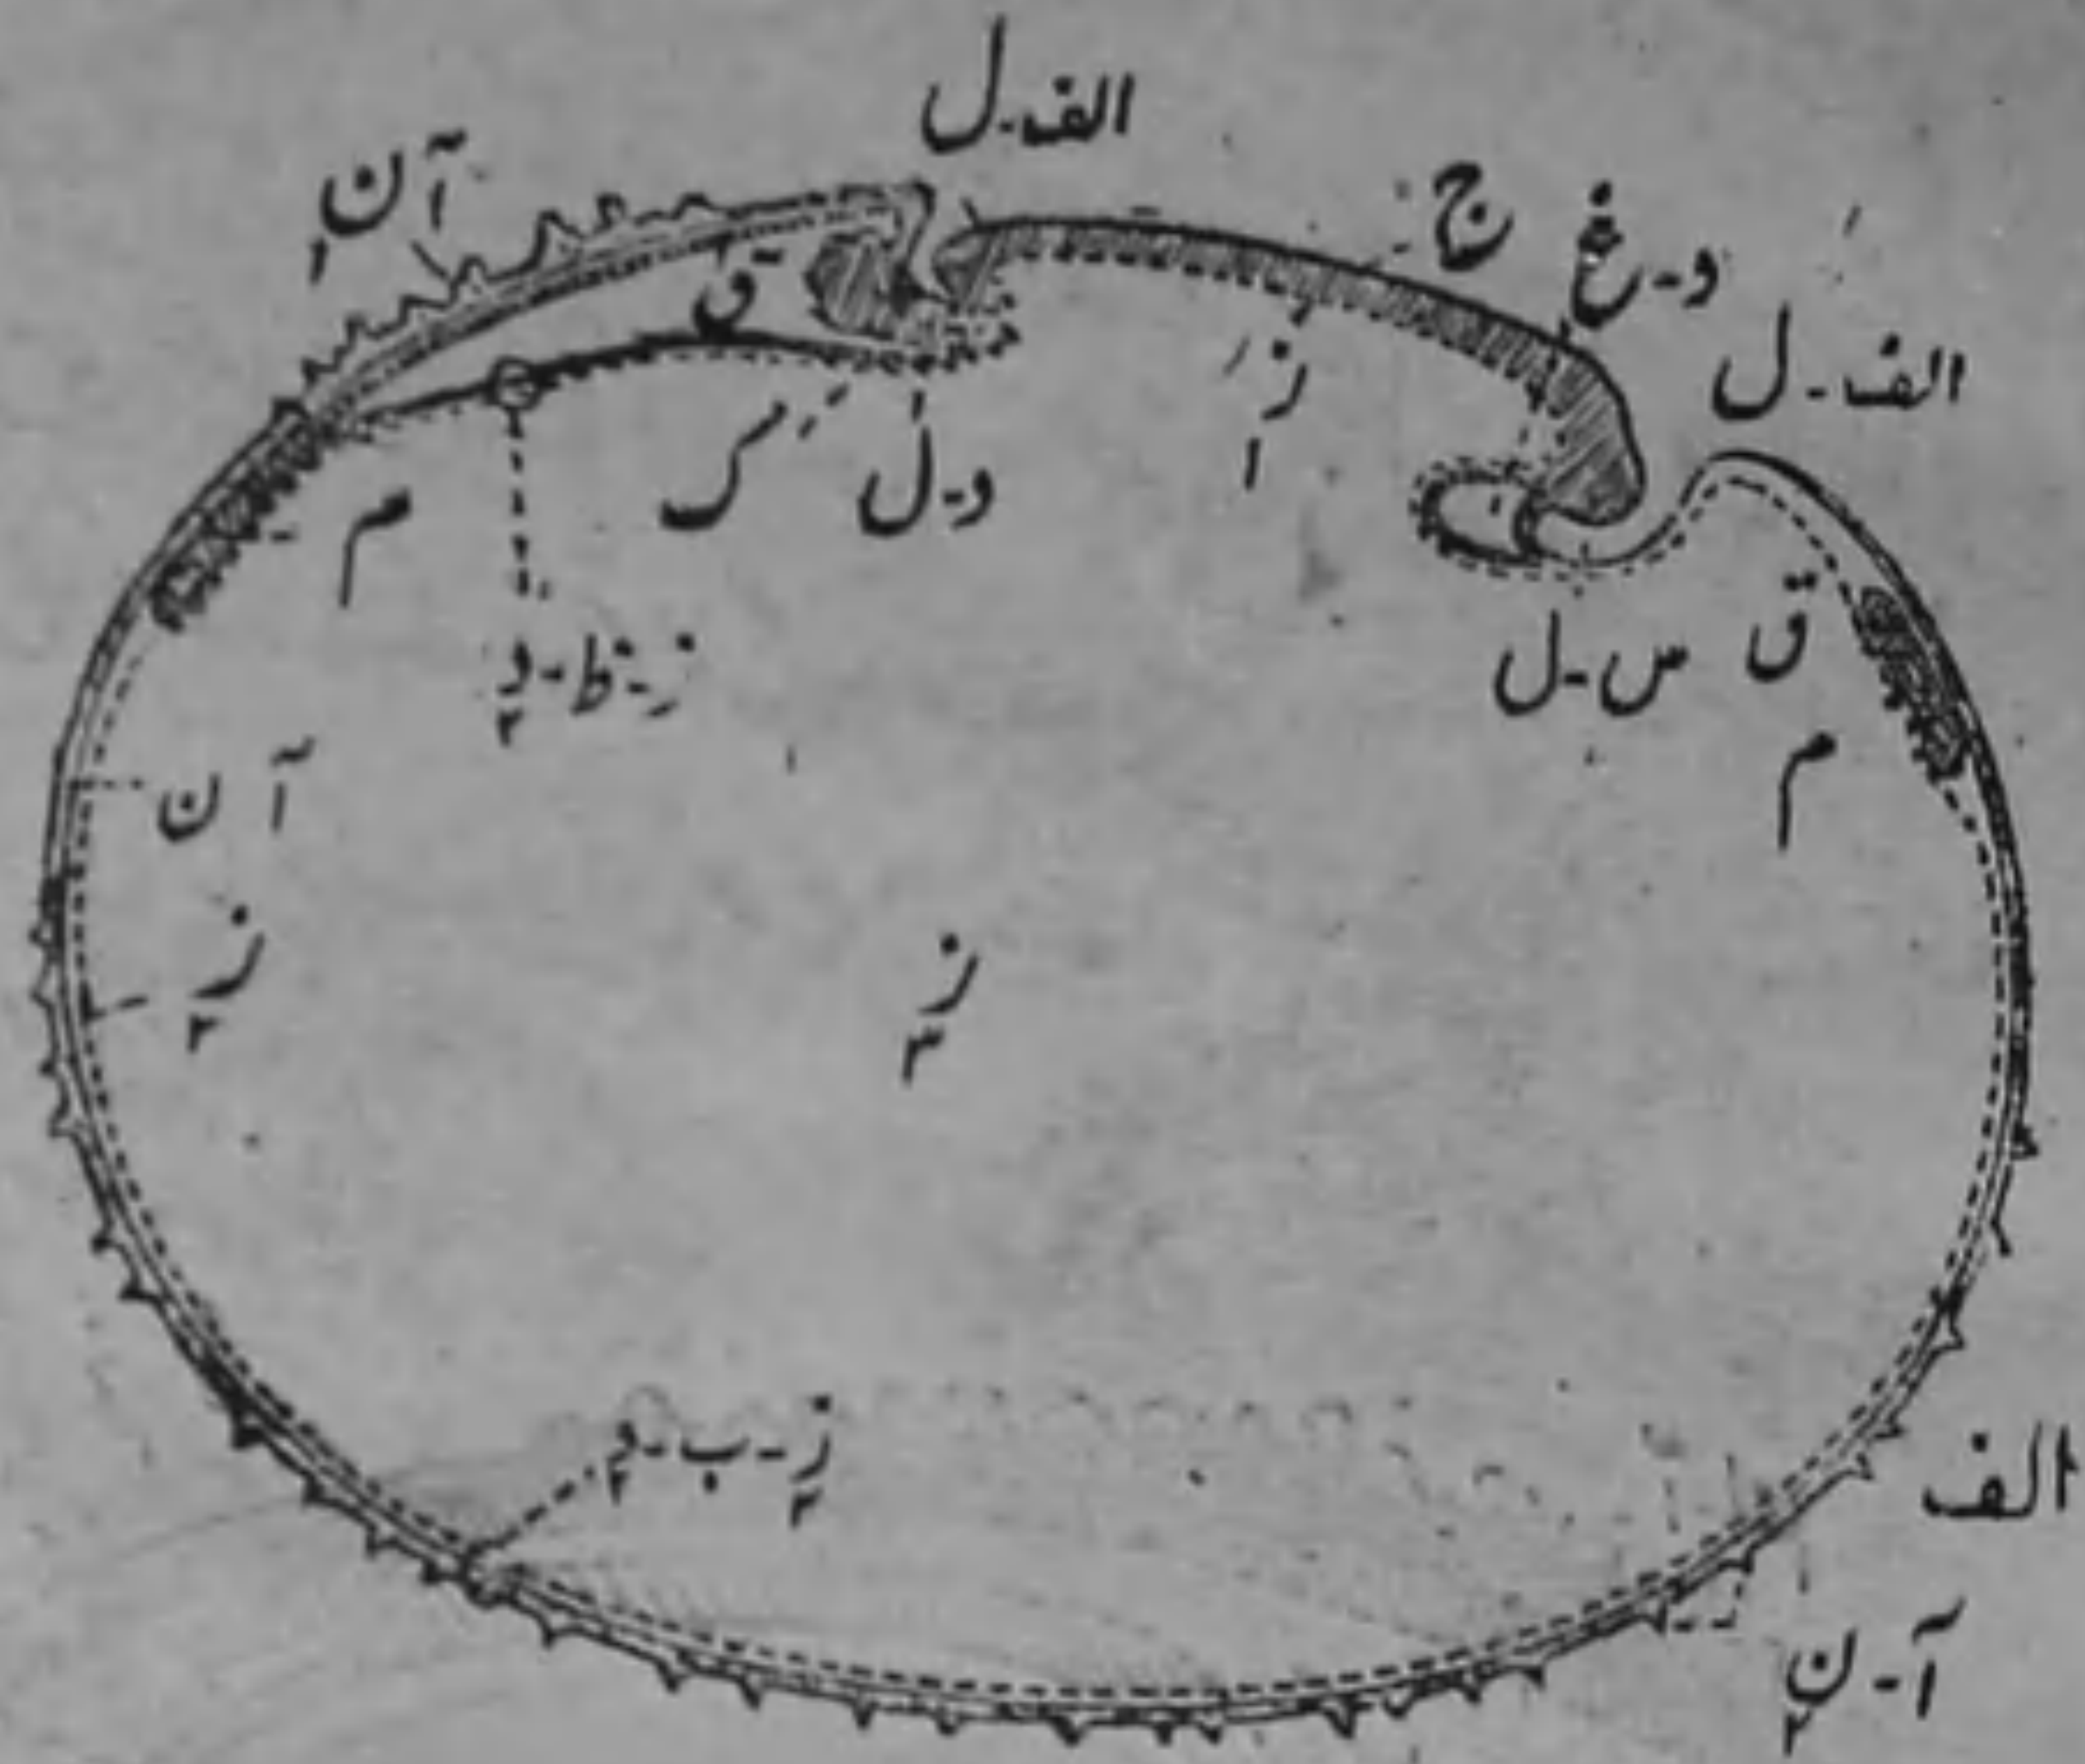 الف-ل
آن
۱
ج
د-غ
الف-ل
ق
ز
۱
م
ک
د-ل
ز-ظ-د
۲
س-ل
ق
م
آ ن
ز
۲
ز
۳
ز-ب-د
۲
۲
الف
آ-ن
۲